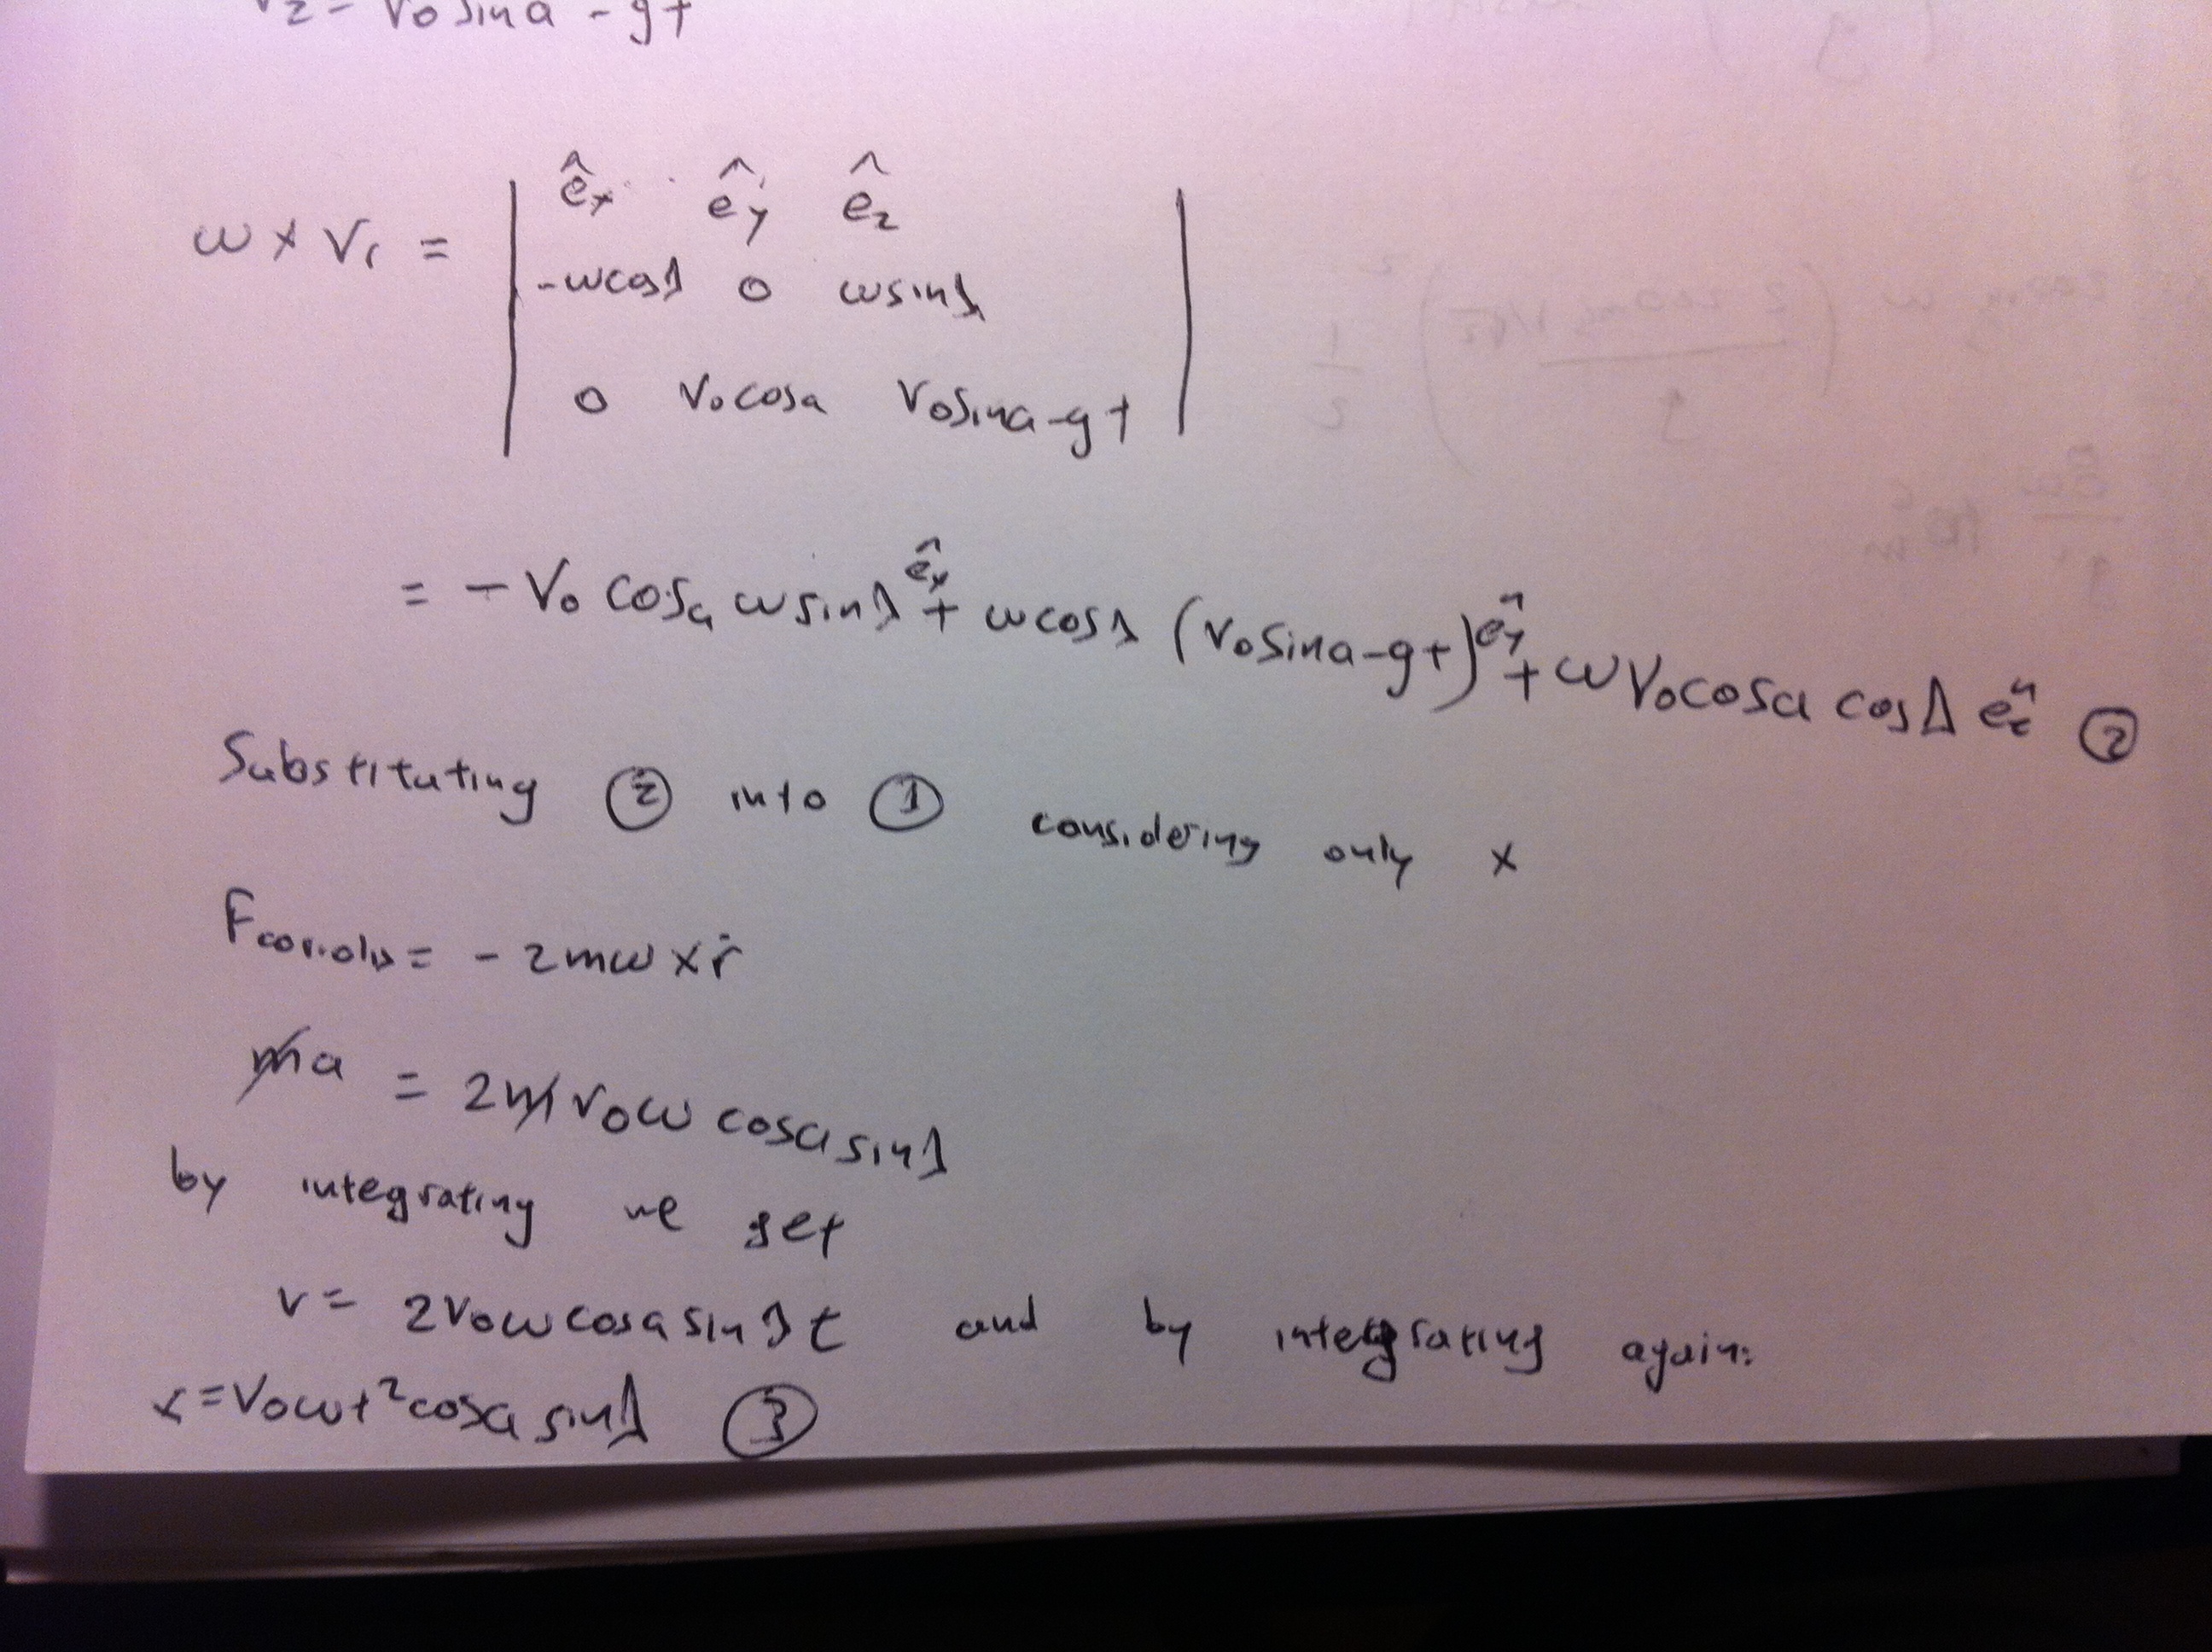 v2 = v0 sina - gt
ω × Vr = | êx êy êz
-ωcosλ 0 ωsinλ
0 v0cosa v0sina-gt |
= - V0 cosa ωsinλ êx + ωcosλ (v0sina-gt) êy + ωV0cosa cosλ êz ②
Substituting ② into ① considering only x
Fcoriolis = - 2mω × ṙ
ma = 2m v0ω cosa sinλ
by integrating we get
v = 2v0ω cosa sinλt and by integrating again:
x = v0ωt² cosa sinλ ③